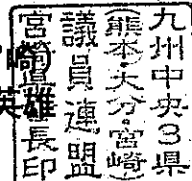 九州中央3県
(熊本・大分・宮崎)
議員連盟
宮崎県長印
崎)
英雄